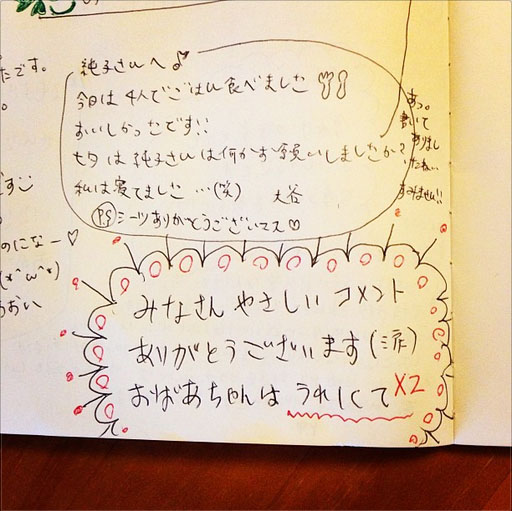 純子さんへ♪
今日は4人でごはん食べました
おいしかったです!!
七夕は純子さんは何かお願いしましたか?
私は寝てました…(笑) 大谷
PS シーツありがとうございマス♡
あっ。
書いて
ありまし
たね…
すみません!!
たです。
のにな〜♡
みなさん やさしい コメント
ありがとうございます(涙)
おばあちゃんは うれしくて X2